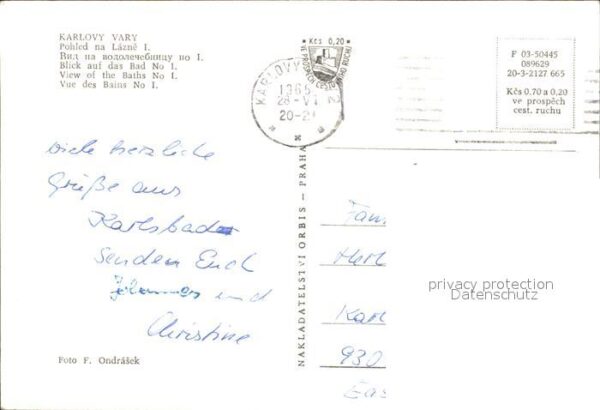 KARLOVY VARY
Pohled na Lázně I.
Вид на водолечебницу но I.
Blick auf das Bad No I.
View of the Baths No I.
Vue des Bains No I.
Kčs 0,20
KARLOVY 2
1365
28-VI
20-21
F 03-50445
089629
20-3-2127 665
Kčs 0.70 a 0,20
ve prospěch
cest. ruchu
Viele herzliche
Grüße aus
Karlsbad
senden Euch
Johannes und
Christine
NAKLADATELSTVÍ ORBIS – PRAHA
Fam.
Karl
930
privacy protection
Datenschutz
Foto F. Ondrášek